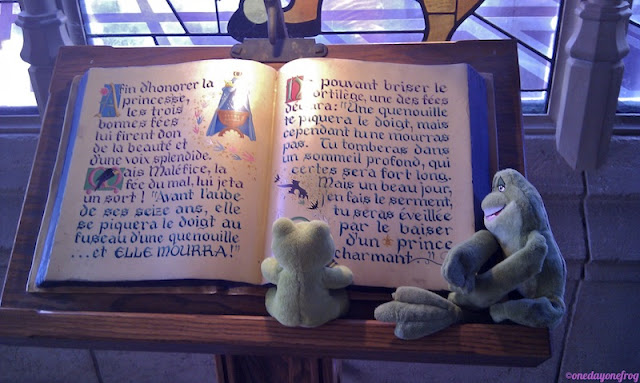 Afin d'honorer la
princesse,
les trois
bonnes fées
lui firent don
de la beauté et
d'une voix splendide.
Mais Maléfice, la
fée du mal, lui jeta
un sort! "Avant l'aube
de ses seize ans, elle
se piquera le doigt au
fuseau d'une quenouille
...et ELLE MOURRA!"
Ne pouvant briser le
sortilège, une des fées
déclara: "Une quenouille
te piquera le doigt, mais
cependant tu ne mourras
pas. Tu tomberas dans
un sommeil profond, qui
certes sera fort long.
Mais un beau jour,
j'en fais le serment,
tu seras éveillée
par le baiser
d'un prince
charmant"
©onedayonefrog